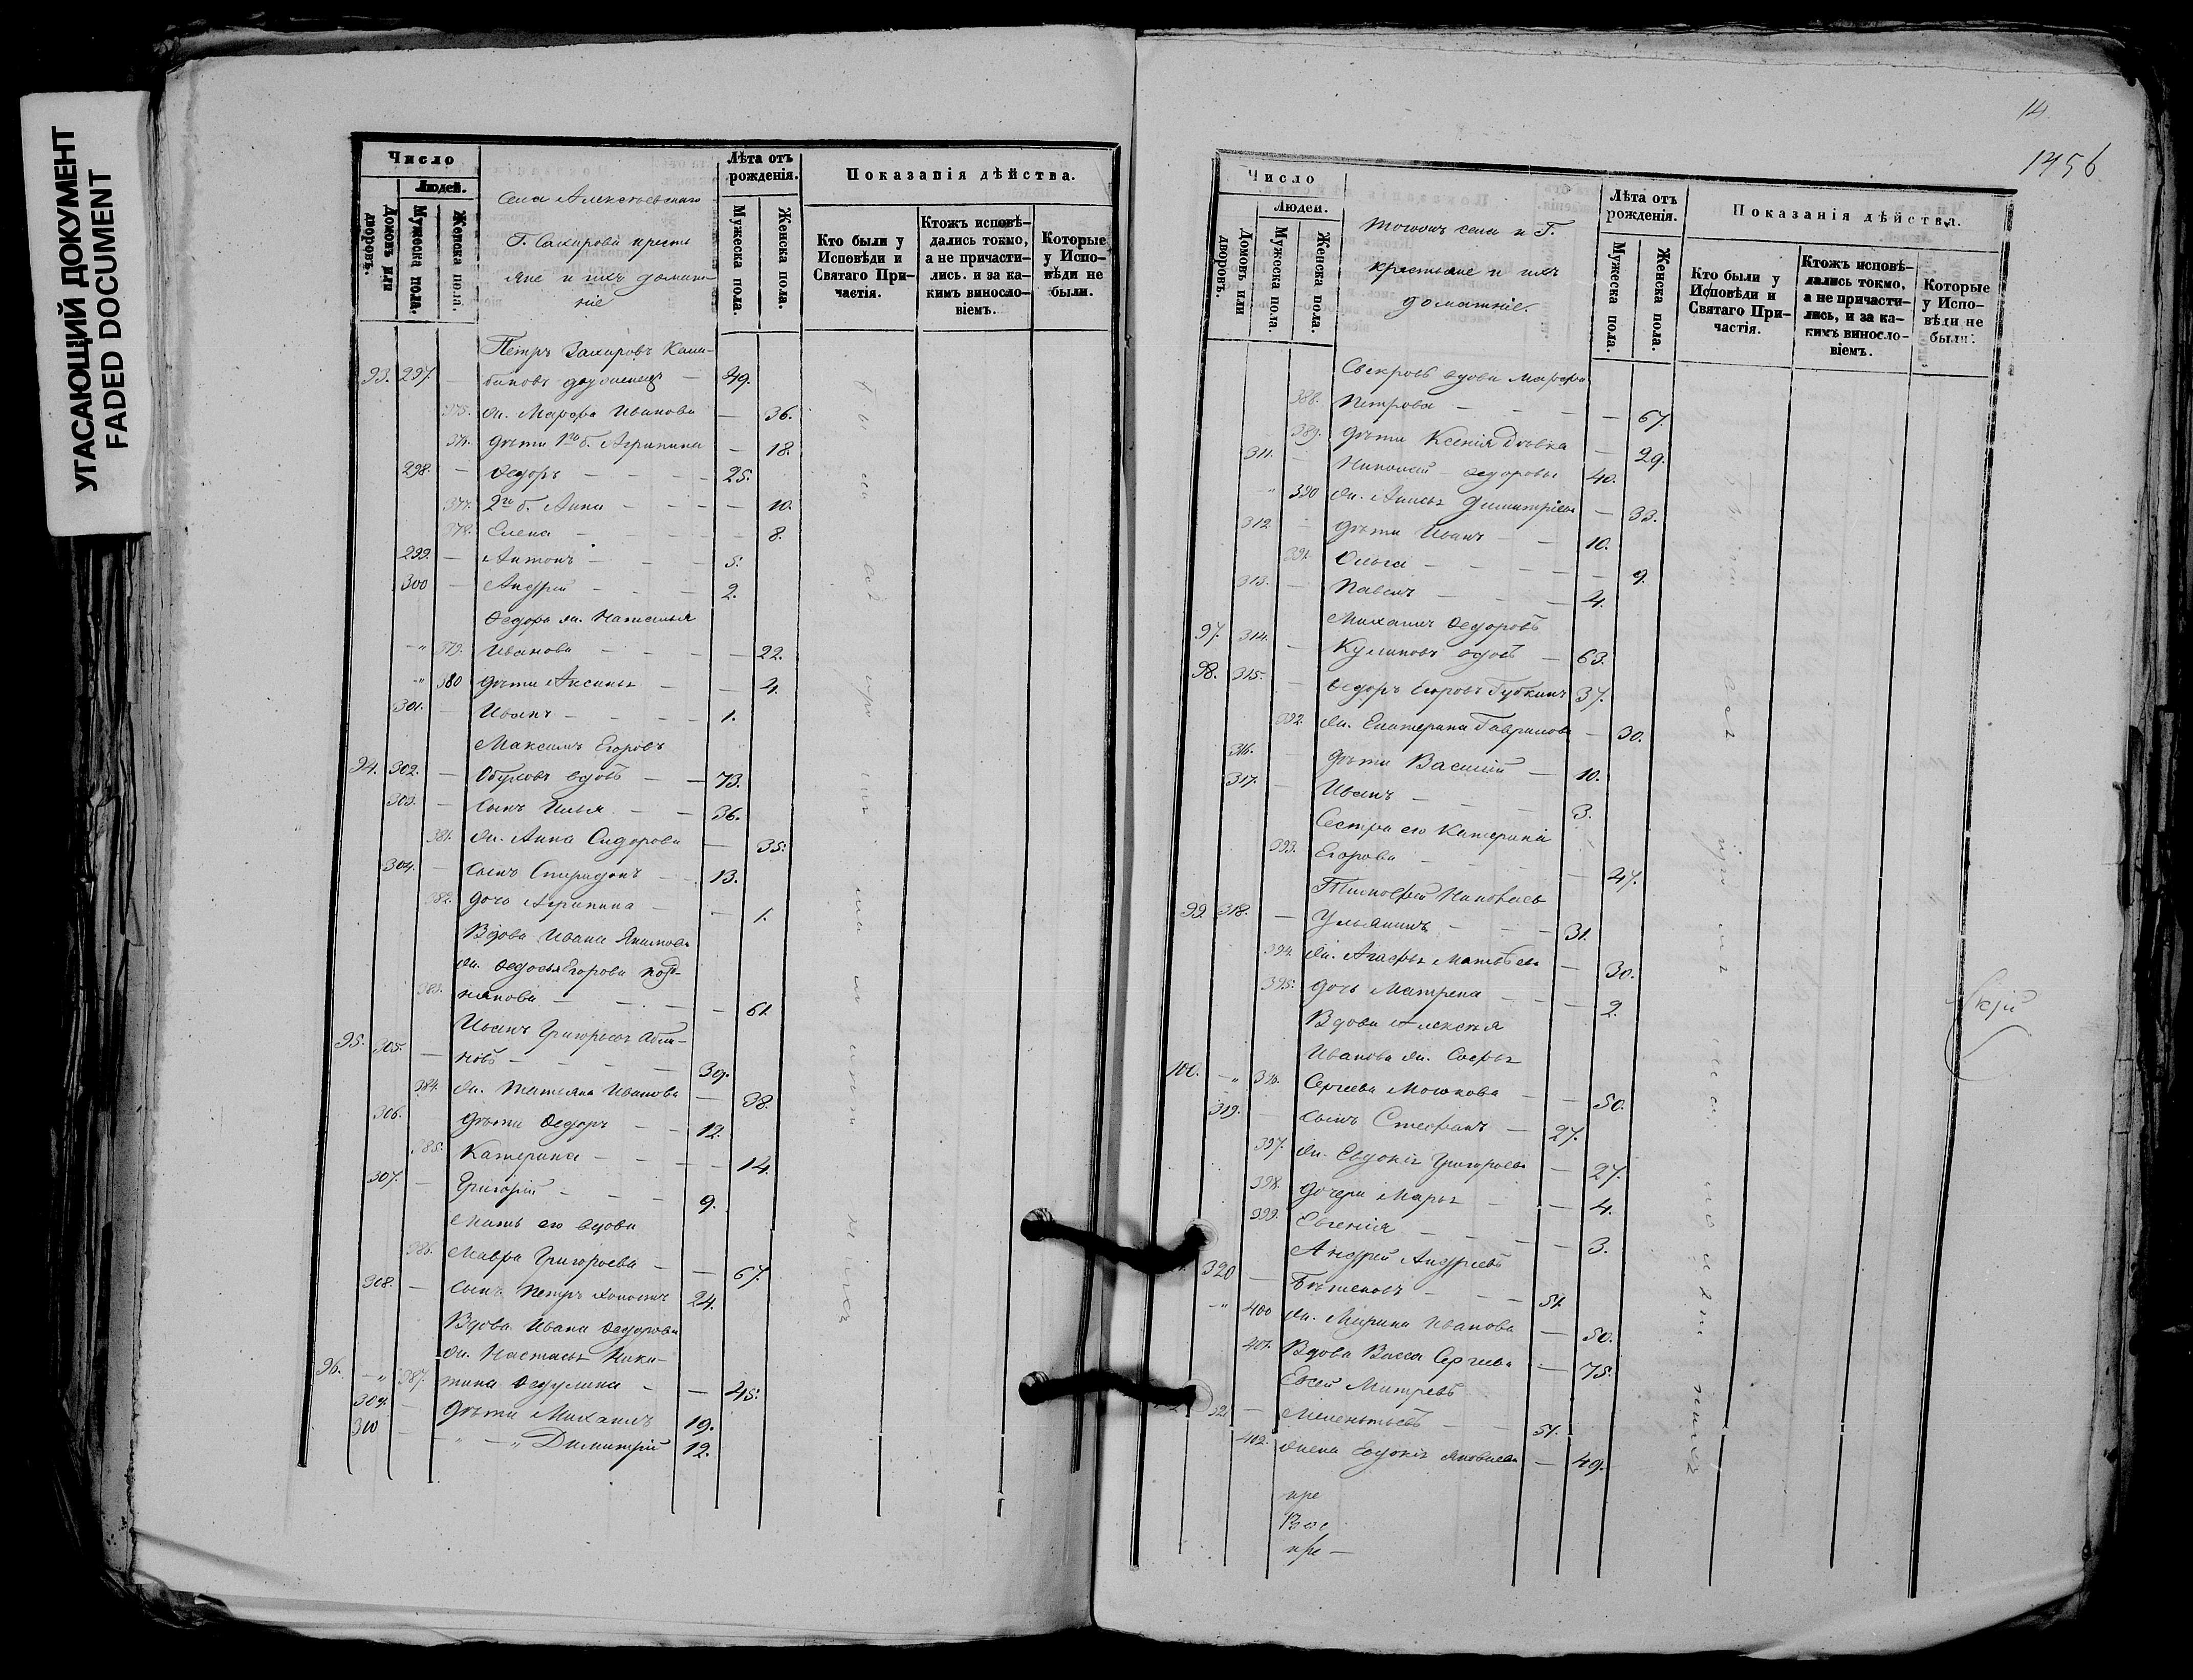 УГАСАЮЩИЙ ДОКУМЕНТ
FADED DOCUMENT
Число
Людей.
Домовъ или дворовъ.
Мужеска пола.
Женска пола.
села Алексѣевскаго
Г. Сахарова кресть
яне и ихъ домаш-
ніе
Лѣта отъ рожденія.
Мужеска пола.
Женска пола.
Показанія дѣйства.
Кто были у Исповѣди и Святаго При-частія.
Ктожъ исповѣ-дались токмо, а не причасти-лись. и за ка-кимъ винослo-віемъ.
Которые у Испо-вѣди не были.
Петръ Захаровъ
93. 297. — — 49.
375. Жи. Марѳа Иванова — 36.
376. дѣти 1го б. Агрипина — 18.
298. — Ѳедоръ — — — 25.
377. 2го б. Анна — — — 10.
378. Елена — — — 8.
299. — Антонъ — — — 5.
300 — Андрей — — — 2.
Ѳедора жи. Наталья
-"- 379. Иванова — — — 22.
-"- 380 дѣти Аксинья — — 4.
301. — Иванъ — — — 1.
Максимъ Егоровъ
94. 302. — Обуховъ вдовъ — — 73.
303. — сынъ Илья — — 36.
381. жи. Анна Сидорова — 35.
304. — сынъ Спиридонъ — 13.
382. дочь Агрипина — — 1.
Вдова Ивана Якимова
жи. Ѳедосья Егорова
383. — — — 61.
Иванъ Григорьевъ
95. 305. — — — 39.
384. жи. Татьяна Иванова — 38.
306. дѣти Ѳедоръ — — 12.
385. Катерина — — — 14.
307. — Григорій — — — 9.
Мать его вдова
386. Мавра Григорьева — — 67.
308. — сынъ Петръ холостъ 24.
Вдова Ивана Ѳедорова
жи. Настасья Ники-
96. -"- 387. тина Ѳедулина — — 45.
309. — дѣти Михаилъ 19.
310 — -"- Димитрій 12.
14
1456
Число
Людей.
Домовъ или дворовъ.
Мужеска пола.
Женска пола.
тогожъ села и Г.
крестьяне и ихъ
домашніе.
Лѣта отъ рожденія.
Мужеска пола.
Женска пола.
Показанія дѣйства.
Кто были у Исповѣди и Святаго При-частія.
Ктожъ исповѣ-дались токмо, а не причасти-лись, и за ка-кимъ винослo-віемъ.
Которые у Испо-вѣди не были.
Свекровь вдова Марѳа
388. Петрова — — — 67.
389. дѣти Ксенія Дѣвка — 29.
311. — Николай Ѳедоровы 40.
-"- 390 жи. Анисья Димитріева — 33.
312 — дѣти Иванъ — — 10.
391. Ольга — — — 9.
313. — Павелъ — — — 4.
Михаилъ Ѳедоровъ
97. 314. — Куликовъ вдовъ — 63.
98. 315. — Ѳедоръ Егоровъ Губкинъ 37.
392. жи. Екатерина Гаврилова — 30.
316. дѣти Василій — 10.
317. — Иванъ — — — 3.
Сестра его Катерина
393. Егорова — — — 47.
Тимоѳей
99 318. — Ульянинъ — — — 31.
394. жи. Агаѳья Матвѣева — 30.
395. дочь Матрена — — — 2.
Вдова Алексѣя
Иванова жи. Софья
100. -"- 396. Сергѣева Мошкова — — 50.
319. — сынъ Стефанъ — 27.
397. жи. Евдокія Григорьева — 27.
398. дочери Марья — — 4.
399. Евгенія — — — 3.
Андрей Андреевъ
320 — — — 51.
-"- 400 жи. Марина Иванова — 50.
401. Вдова Васса Сергѣева — 75.
Евсей Митревъ
321 — Мелентьевъ — — 51.
402. жена Евдокія Яковлева — 49.